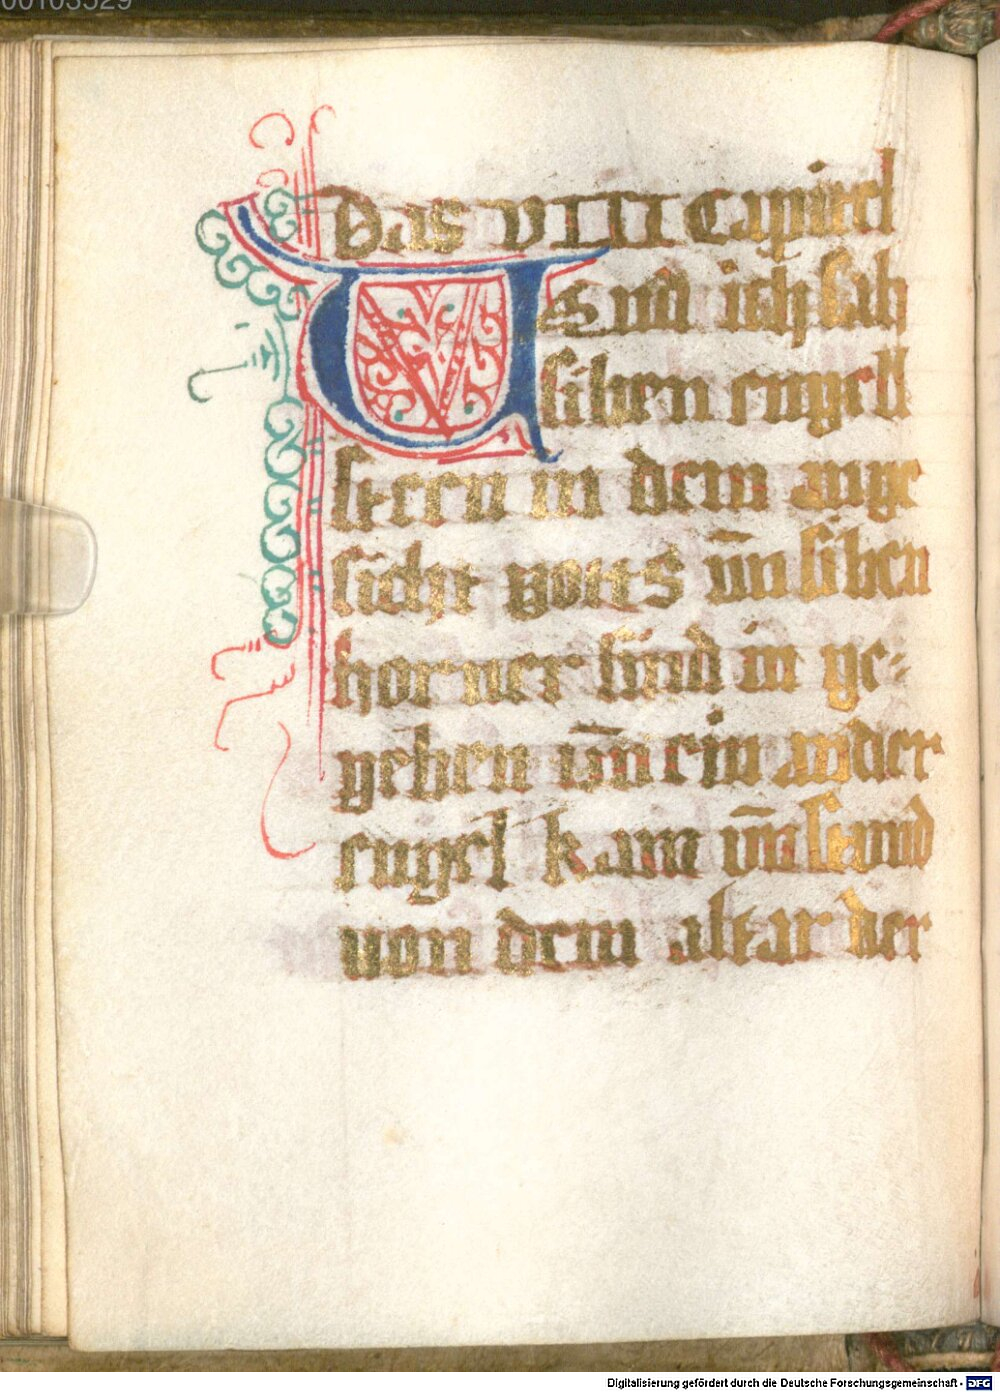 00103529
Das VIII Capitel
Und ich sah
siben engell
steen in dem ange
sicht gotts un̄ siben
horner sind in ge⸗
geben un̄ ein ander
engel kam un̄ stund
von dem altar der
Digitalisierung gefördert durch die Deutsche Forschungsgemeinschaft - DFG